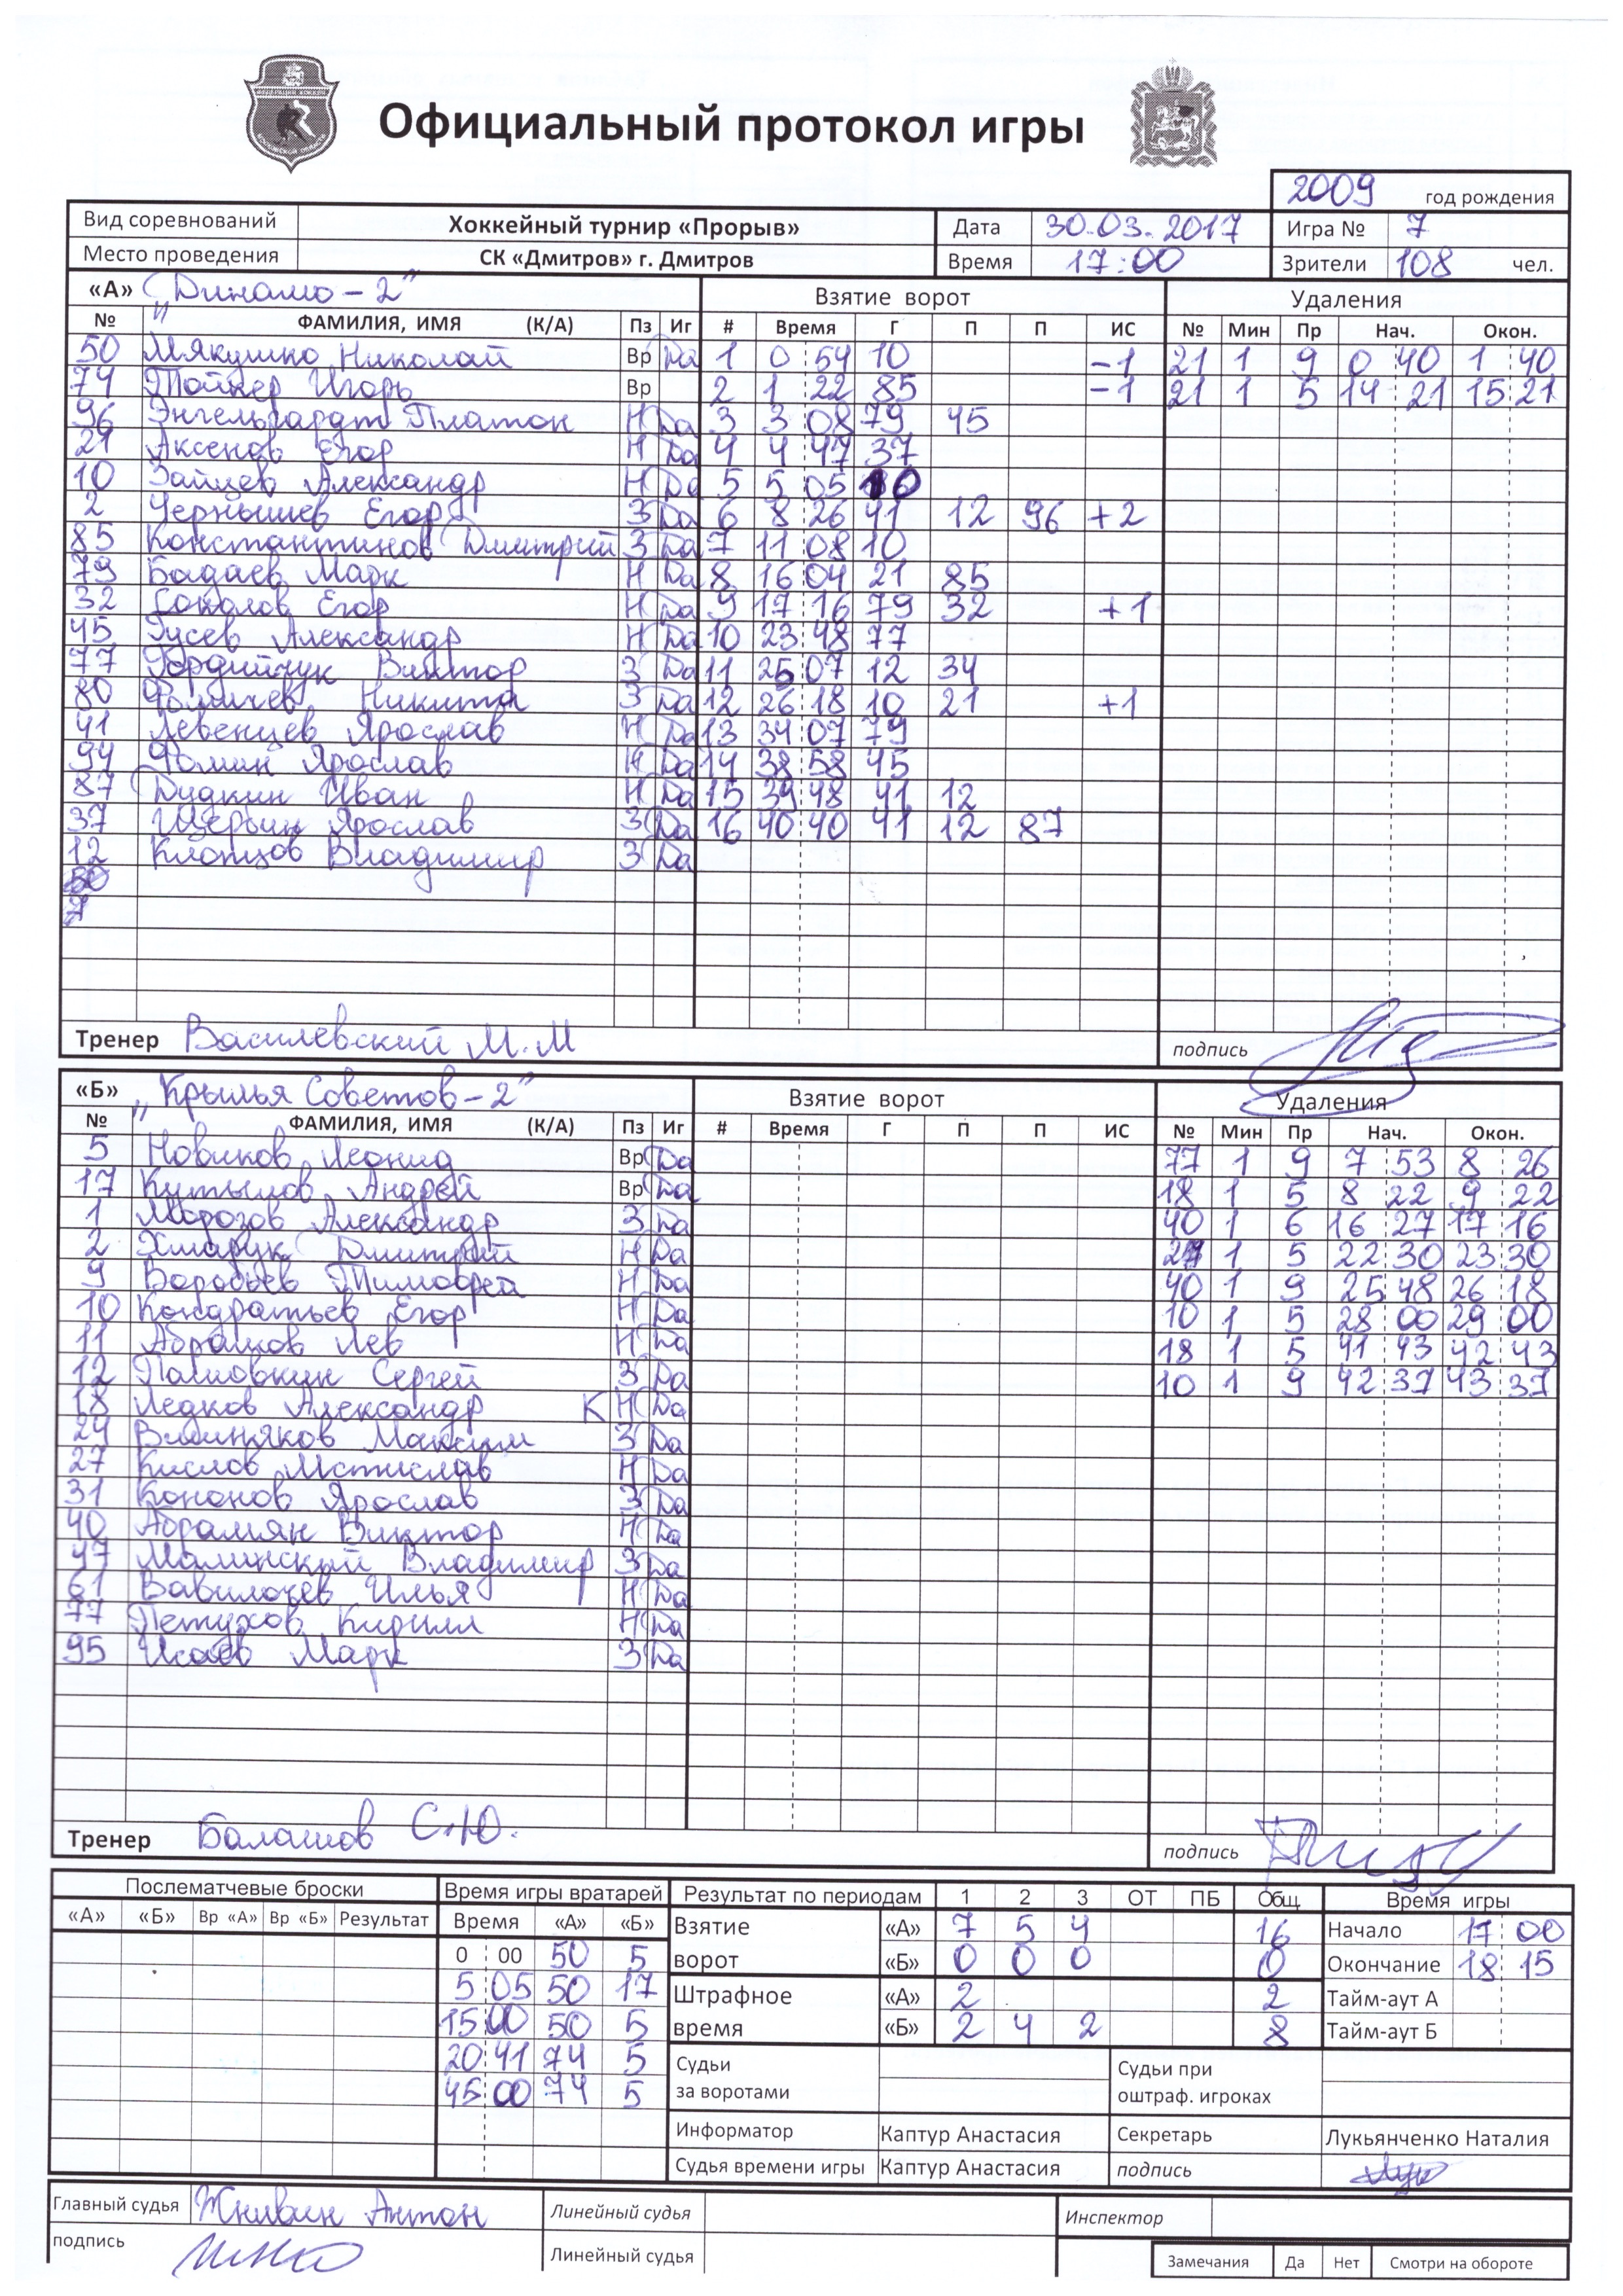 Официальный протокол игры
2009 год рождения
Вид соревнований Хоккейный турнир «Прорыв» Дата 30.03.2017 Игра № 7
Место проведения СК «Дмитров» г. Дмитров Время 17:00 Зрители 108 чел.
«А» "Динамо-2" Взятие ворот Удаления
№ ФАМИЛИЯ, ИМЯ (К/А) Пз Иг # Время Г П П ИС № Мин Пр Нач. Окон.
50 Мякушко Николай Вр Да 1 0 54 10 -1 21 1 9 0 40 1 40
74 Тойкер Игорь Вр 2 1 22 85 -1 21 1 5 14 21 15 21
96 Энгельгардт Платон Н Да 3 3 08 79 45
21 Аксенов Егор Н Да 4 4 47 37
10 Зайцев Александр Н Да 5 5 05 10
2 Чернышев Егор З Да 6 8 26 41 12 96 +2
85 Константинов Дмитрий З Да 7 11 08 10
79 Бадаев Марк Н Да 8 16 04 21 85
32 Соколов Егор Н Да 9 17 16 79 32 +1
45 Гусев Александр Н Да 10 23 48 77
77 Гордийчук Виктор З Да 11 25 07 12 34
80 Фомичев Никита З Да 12 26 18 10 21 +1
41 Левенцев Ярослав Н Да 13 34 07 79
94 Фомин Ярослав Н Да 14 38 58 45
87 Дудкин Иван Н Да 15 39 48 41 12
37 Щербин Ярослав З Да 16 40 40 41 12 87
12 Клопцов Владимир З Да
Тренер Василевский М.М подпись
«Б» "Крылья Советов-2" Взятие ворот Удаления
№ ФАМИЛИЯ, ИМЯ (К/А) Пз Иг # Время Г П П ИС № Мин Пр Нач. Окон.
5 Новиков Леонид Вр Да 77 1 9 7 53 8 26
17 Кутылов Андрей Вр Да 18 1 5 8 22 9 22
1 Морозов Александр З Да 40 1 6 16 27 17 16
2 Хмарук Дмитрий Н Да 1 5 22 30 23 30
9 Воробьев Тимофей Н Да 40 1 9 25 48 26 18
10 Кондратьев Егор Н Да 10 1 5 28 00 29 00
11 Абрамов Лев Н Да 18 1 5 41 43 42 43
12 Палловкин Сергей З Да 10 1 9 42 37 43 37
18 Ледков Александр К Н Да
24 Вишняков Максим З Да
27 Кислов Мстислав Н Да
31 Кононов Ярослав З Да
40 Абрамян Виктор Н Да
47 Малинский Владимир З Да
61 Вавилочев Илья Н Да
77 Петухов Кирилл Н Да
95 Исаев Марк З Да
Тренер Балашов С.Ю. подпись
Послематчевые броски Время игры вратарей Результат по периодам 1 2 3 ОТ ПБ Общ. Время игры
«А» «Б» Вр «А» Вр «Б» Результат Время «А» «Б» Взятие ворот «А» 7 5 4 16 Начало 17 00
0 00 50 5 «Б» 0 0 0 0 Окончание 18 15
5 05 50 17 Штрафное время «А» 2 2 Тайм-аут А
15 00 50 5 «Б» 2 4 2 8 Тайм-аут Б
20 41 74 5 Судьи за воротами Судьи при оштраф. игроках
45 00 74 5
Информатор Каптур Анастасия Секретарь Лукьянченко Наталия
Судья времени игры Каптур Анастасия подпись
Главный судья Жилвин Антон Линейный судья Инспектор
подпись Линейный судья Замечания Да Нет Смотри на обороте